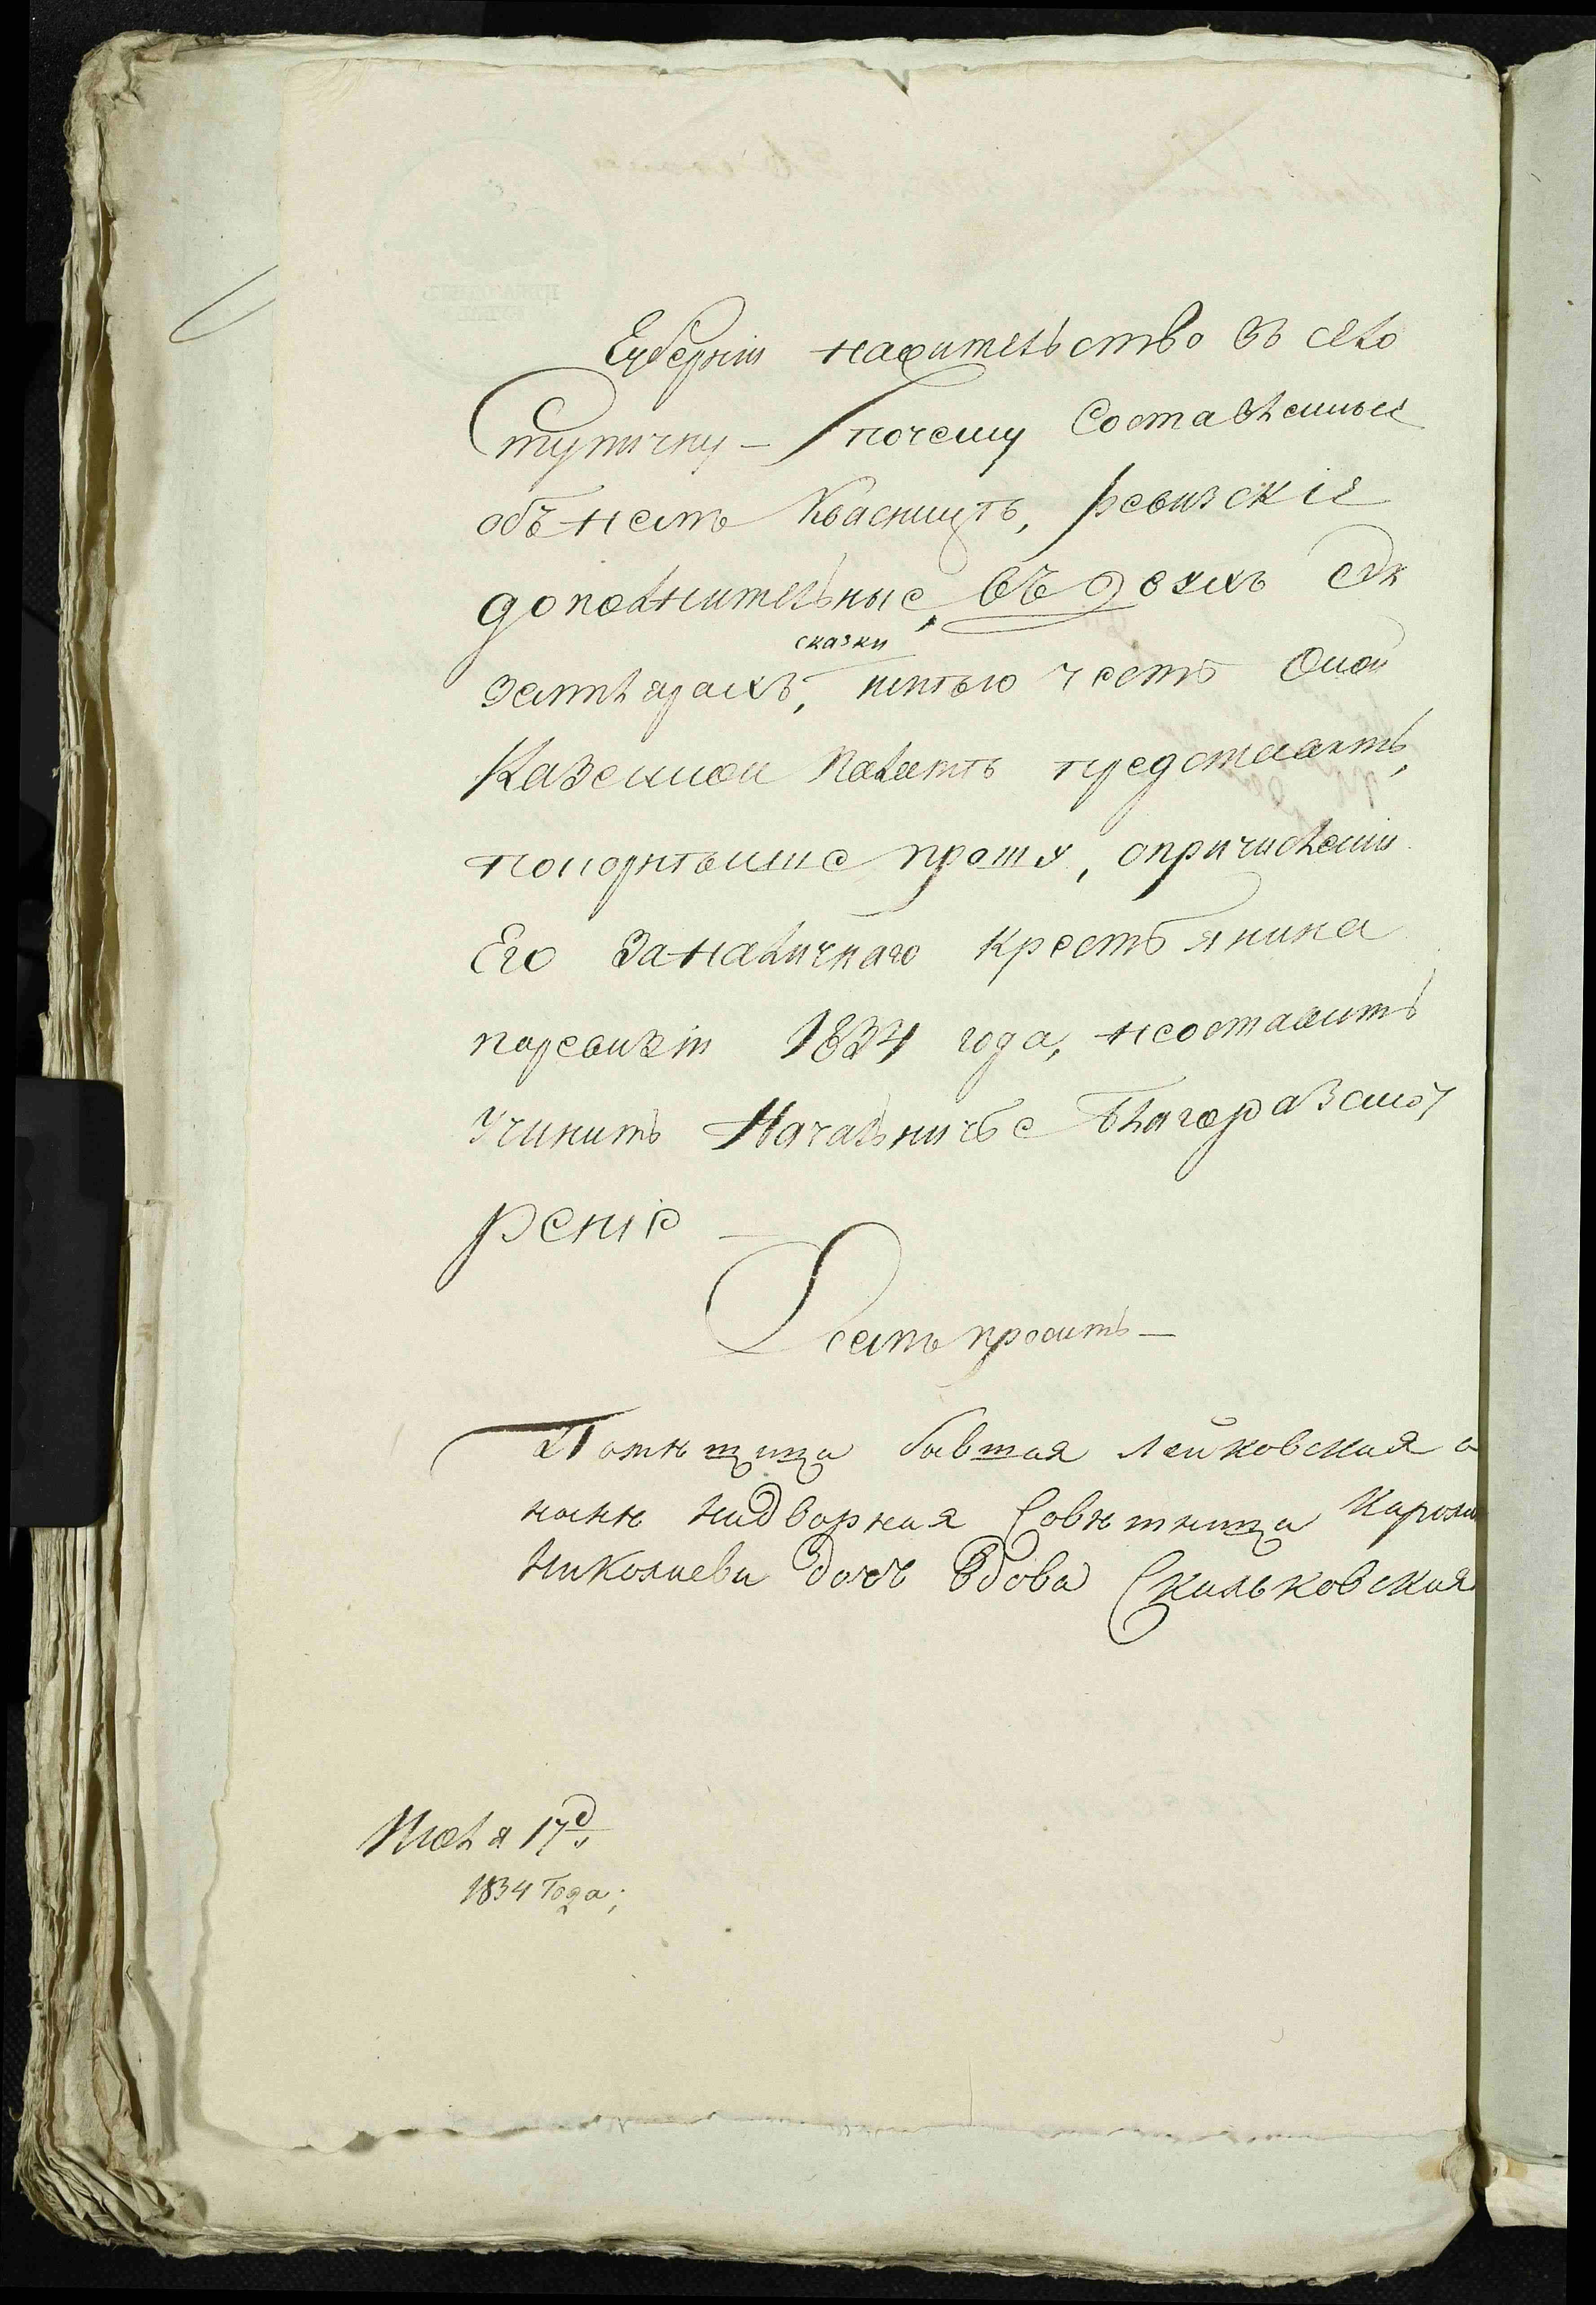 Губерніи нажительство въ село
Ступичну — почему Составленные
объ немъ Квасницъ, ревизскіе
дополнительные въ двухъ эк
сказки
земплярахъ, имѣю честь Оной
Казенной Палатѣ представить,
покорнѣйше прошу, опричисленіи
Его Заналичнаго крестьянина
поревизіи 1834 года, неоставить
Учинить Начальничье благоразсмот
реніе —
О семъ проситъ —
Помѣщица бывшая Лейковская а
нынѣ надворная Совѣтница Кароли
Николаева дочь вдова Скальковская
Июля 17 д
1834 Года;